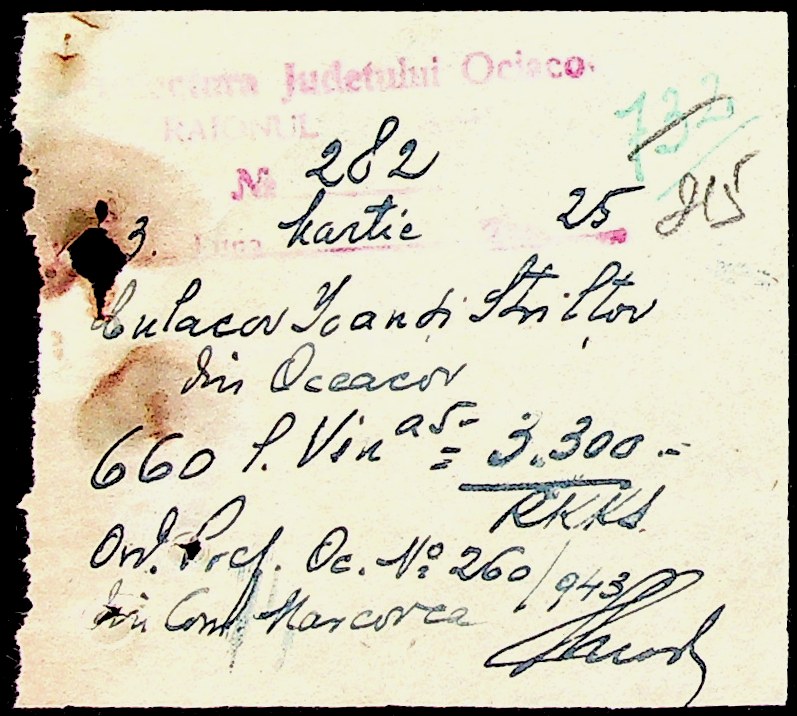 Prefectura Judetului Ociacov
RAIONUL
732
№ 282
815
3. Luna Martie 25
Culacov Ioan și Striltov
din Oceacov
660 l. Vin a 5- = 3.300.-
RKKS.
Ord. Pref. Oc. № 260/943
din Com. Mascovca